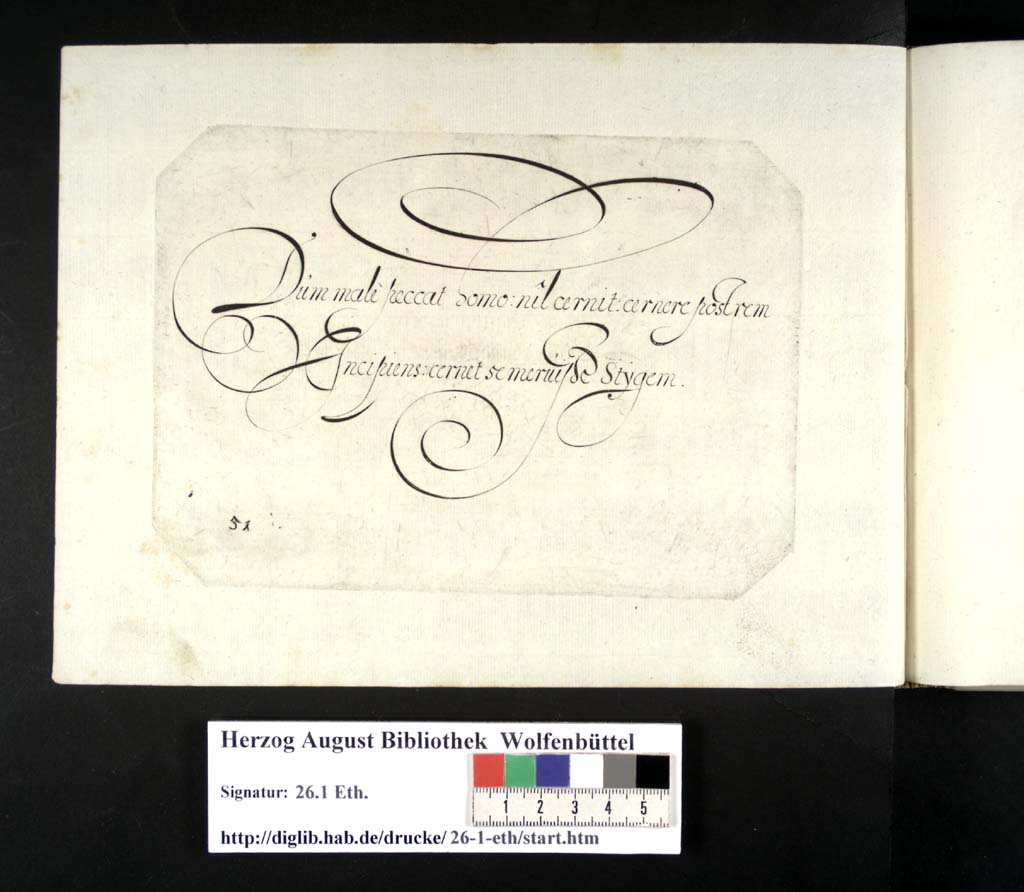 Dum malè peccat homo: nîl cernit: cernere post rem
Incipiens: cernet se meruiſse Stygem.
51
Herzog August Bibliothek Wolfenbüttel
Signatur: 26.1 Eth.
1 2 3 4 5
http://diglib.hab.de/drucke/ 26-1-eth/start.htm